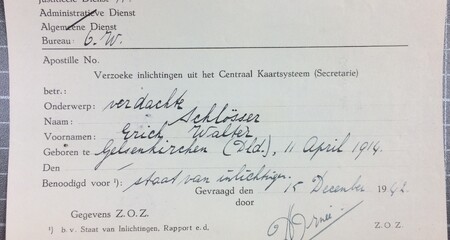 Administratieve Dienst
Algemeene Dienst
Bureau: O.W.
Apostille No.
Verzoeke inlichtingen uit het Centraal Kaartsysteem (Secretarie)
betr.:
Onderwerp: verdachte
Naam: Schlösser
Voornamen: Erich Walter
Geboren te Gelsenkirchen (Dld.), 11 April 1914.
Den
Benoodigd voor ¹): staat van inlichtigen.
Gevraagd den 15 December 1942
door
Gegevens Z.O.Z.
Z.O.Z.
¹) b.v. Staat van Inlichtingen, Rapport e.d.